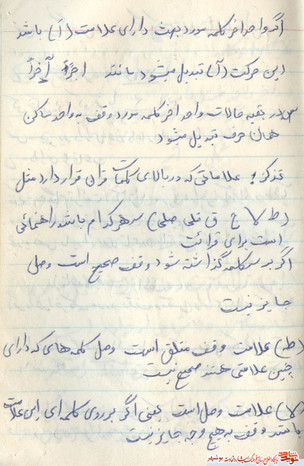 اگر واحد آخر کلمه مورد بحث دارای علامت (اً) باشد
این حرکت (اً) تبدیل میشود مانند اجراً آخراً
س در بقیه حالات واحد آخر کلمه مورد وقف به واحد ساکن
همان حرف تبدیل میشود
تذکر: علاماتی که در بالای کلمات قرآن قرار دارد مثل
(ط لا ج ق قلی صلی) هر کدام باشد راهنمائی
است برای قرائت
اگر بر سر کلمه گذاشته شود وقف صحیح است وصل
جایز نیست
(ط) علامت وقف مطلق است وصل کلمه های که دارای
چنین علامتی هستند صحیح نیست
(لا) علامت وصل است یعنی اگر بر روی کلمه ای این علامت
باشد وقف به هیچ وجه جایز نیست